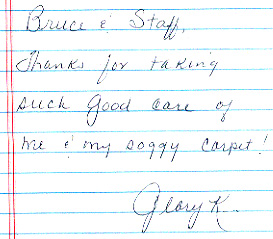 Bruce & Staff,
Thanks for taking
such good care of
me & my soggy carpet!
Glory K.